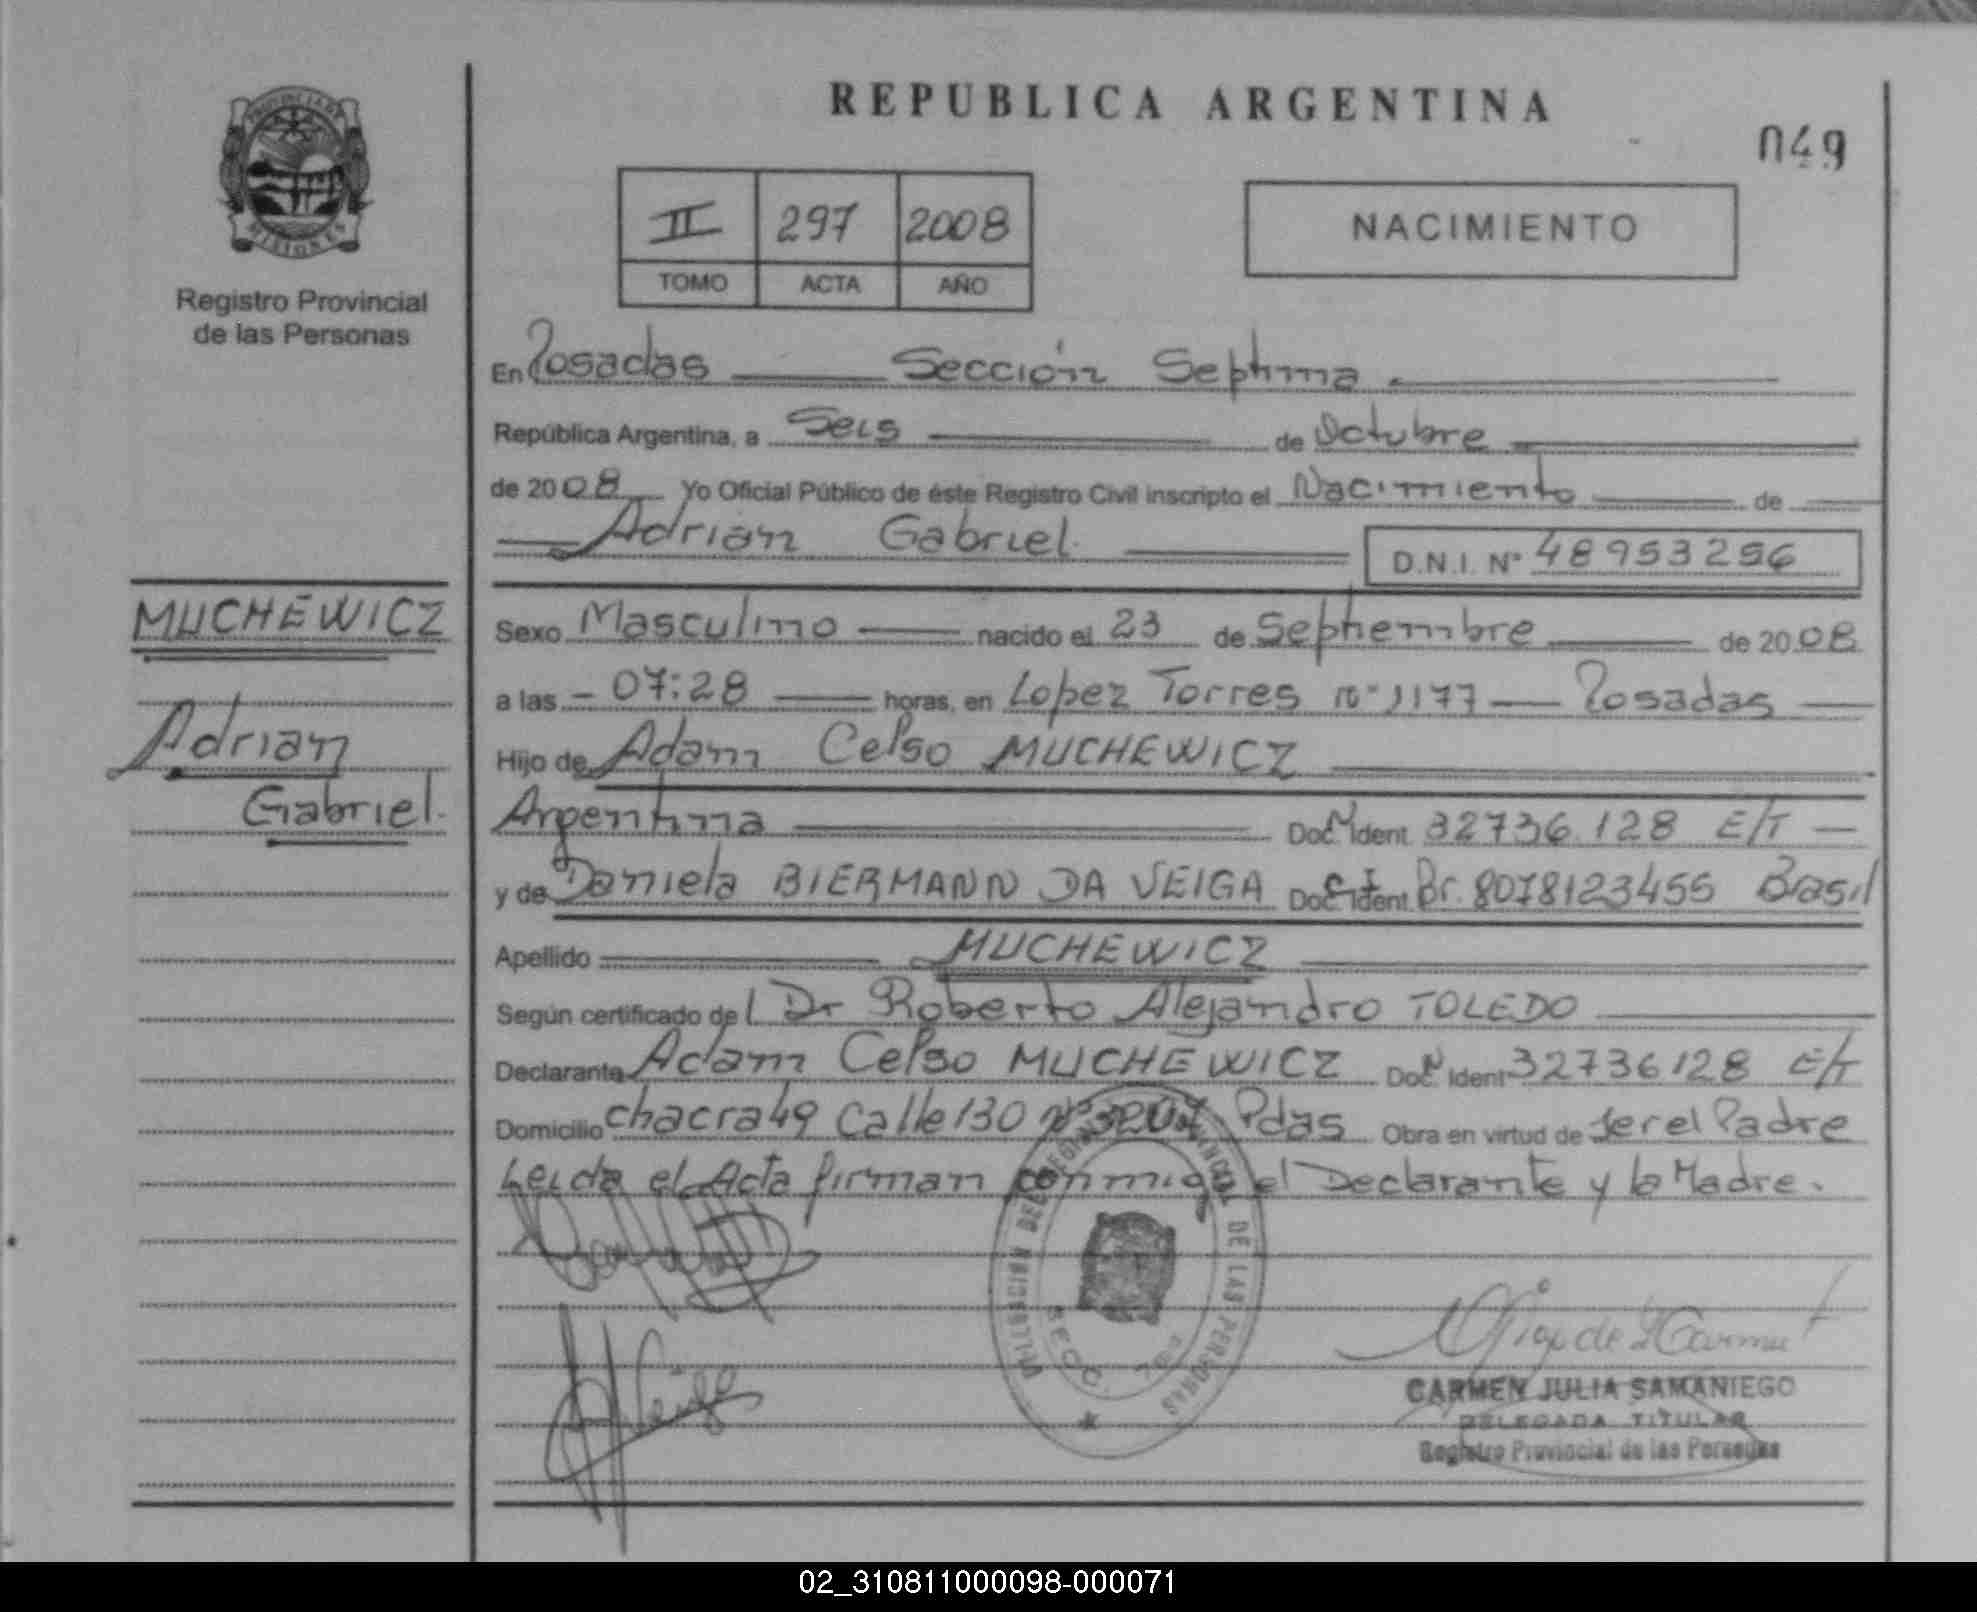 REPUBLICA ARGENTINA
049
PROVINCIA DE
MISIONES
Registro Provincial
de las Personas
II 297 2008
TOMO ACTA AÑO
NACIMIENTO
En Posadas Sección Septima
República Argentina, a Seis de Octubre
de 2008 Yo Oficial Público de éste Registro Civil inscripto el Nacimiento de
Adrian Gabriel. D.N.I. Nº 48953256
MUCHEWICZ
Adrian
Gabriel.
Sexo Masculino nacido el 23 de Septiembre de 2008
a las 07:28 horas, en Lopez Torres nº 1177 Posadas
Hijo de Adam Celso MUCHEWICZ
Argentina Doc. Ident. 32736.128 E/T
y de Daniela BIERMANN DA VEIGA Doc. Ident. Br. 8078123455 Brasil
Apellido MUCHEWICZ
Según certificado del Dr Roberto Alejandro TOLEDO
Declarante Adam Celso MUCHEWICZ Doc. Ident 32736128 E/T
Domicilio chacra 49 Calle 130 Nº Pdas Obra en virtud de ser el Padre
Leida el Acta firman conmigo el Declarante y la Madre.
DE LAS PERSONAS
SECC. 7
CARMEN JULIA SAMANIEGO
DELEGADA TITULAR
Registro Provincial de las Personas
02_310811000098-000071